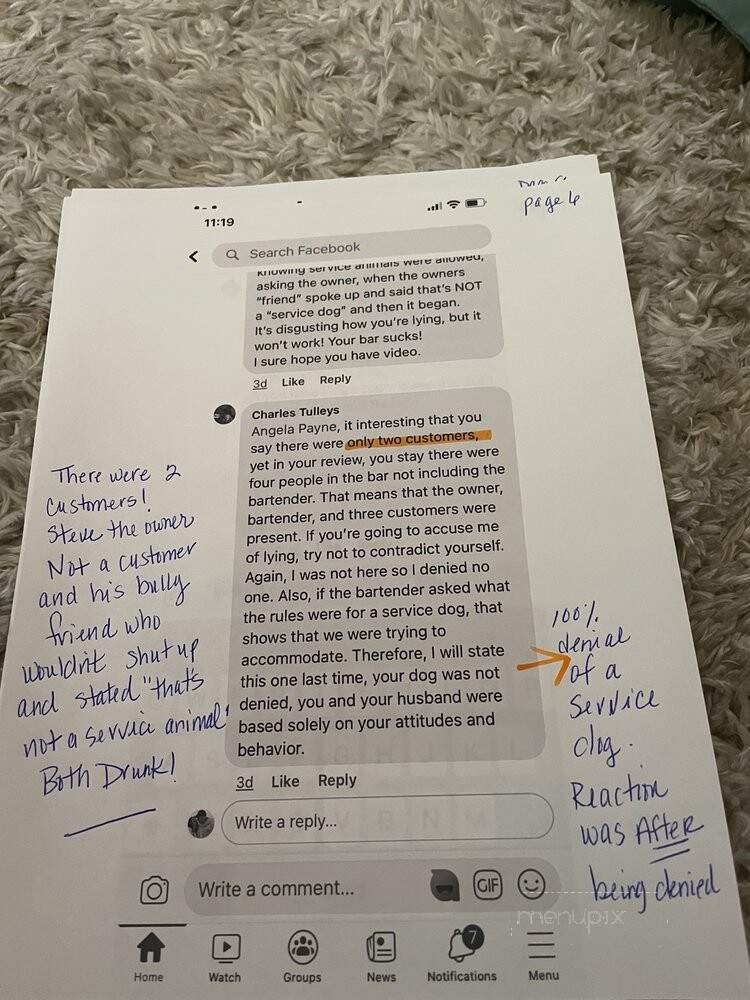 page 6
11:19
Search Facebook
knowing service animals were allowed,
asking the owner, when the owners
“friend” spoke up and said that’s NOT
a “service dog” and then it began.
It’s disgusting how you’re lying, but it
won’t work! Your bar sucks!
I sure hope you have video.
3d Like Reply
Charles Tulleys
Angela Payne, it interesting that you
say there were only two customers,
yet in your review, you stay there were
four people in the bar not including the
bartender. That means that the owner,
bartender, and three customers were
present. If you’re going to accuse me
of lying, try not to contradict yourself.
Again, I was not here so I denied no
one. Also, if the bartender asked what
the rules were for a service dog, that
shows that we were trying to
accommodate. Therefore, I will state
this one last time, your dog was not
denied, you and your husband were
based solely on your attitudes and
behavior.
3d Like Reply
There were 2
customers!
Steve the owner
Not a customer
and his bully
friend who
wouldn't shut up
and stated "that's
not a service animal"
Both Drunk!
100%
denial
of a
Service
dog.
Reaction
was After
being denied
Write a reply...
Write a comment...
GIF
menupix
7
Home
Watch
Groups
News
Notifications
Menu